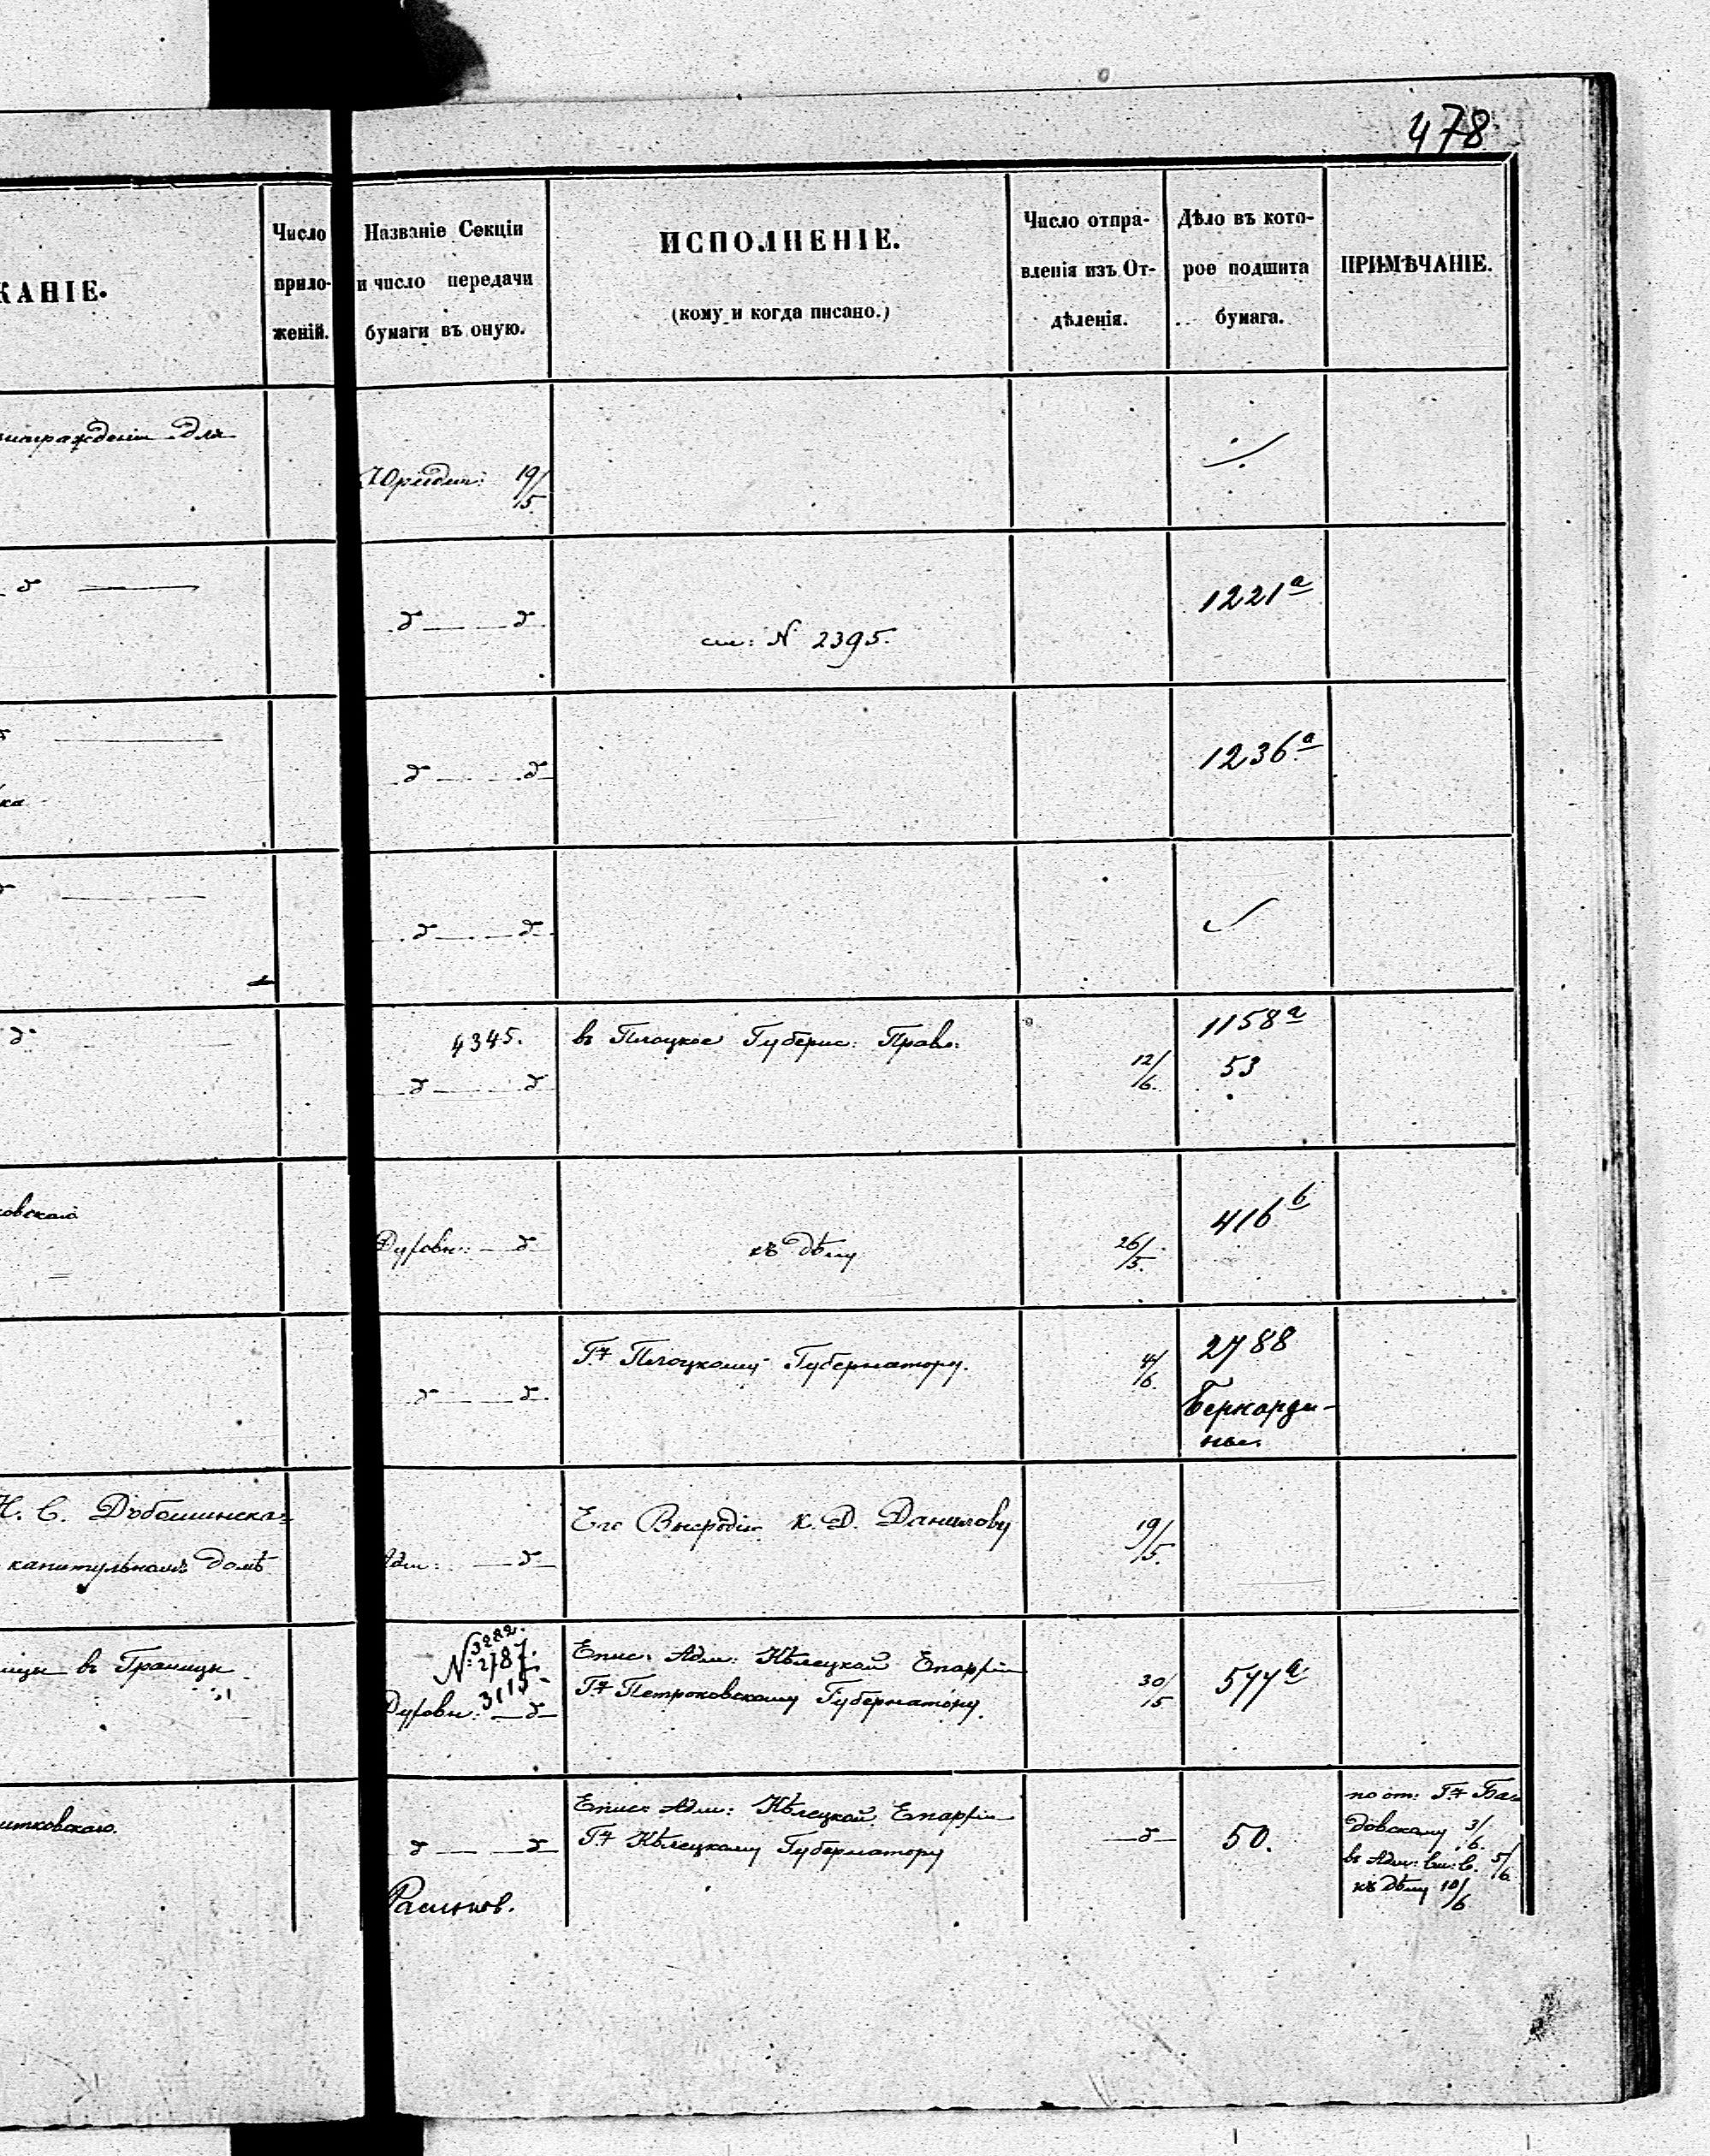 478
КАНІЕ.
Число
прило-
женій.
Названіе Секціи
и число передачи
бумаги въ оную.
ИСПОЛНЕНІЕ.
(кому и когда писано.)
Число отпра-
вленія изъ От-
дѣленія.
Дѣло въ кото-
рое подшита
бумага.
ПРИМѢЧАНІЕ.
награжденіи для
Юридич: 19/5
д
д — д
см: N 2395.
1221а
д — д
1236а
ка
д — д
д
4345.
д — д
въ Плоцкое Губернс: Правл:
12/6.
1158а
53
овскаго
Духовн: — д
къ дѣлу
26/5.
416б
д — д.
Гну Плоцкому Губернатору.
4/6.
2788
Бернарди-
ны.
Н. С.
капитульномъ домѣ
Адм: — д
Его Высродію К. Д. Данилову
19/5.
ицы въ Границы
3282.
N: 2787.
3115
Духовн: — д
Епис: Адм: Кѣлецкой Епархіи
Гну Петроковскому Губернатору.
30/5
577а
итковскаго.
д — д
Епис: Адм: Кѣлецкой Епархіи
Гну Кѣлецкому Губернатору
— д —
50.
по от: Гну
довскому 3/6.
въ Адм: 5/6
къ дѣлу 10/6